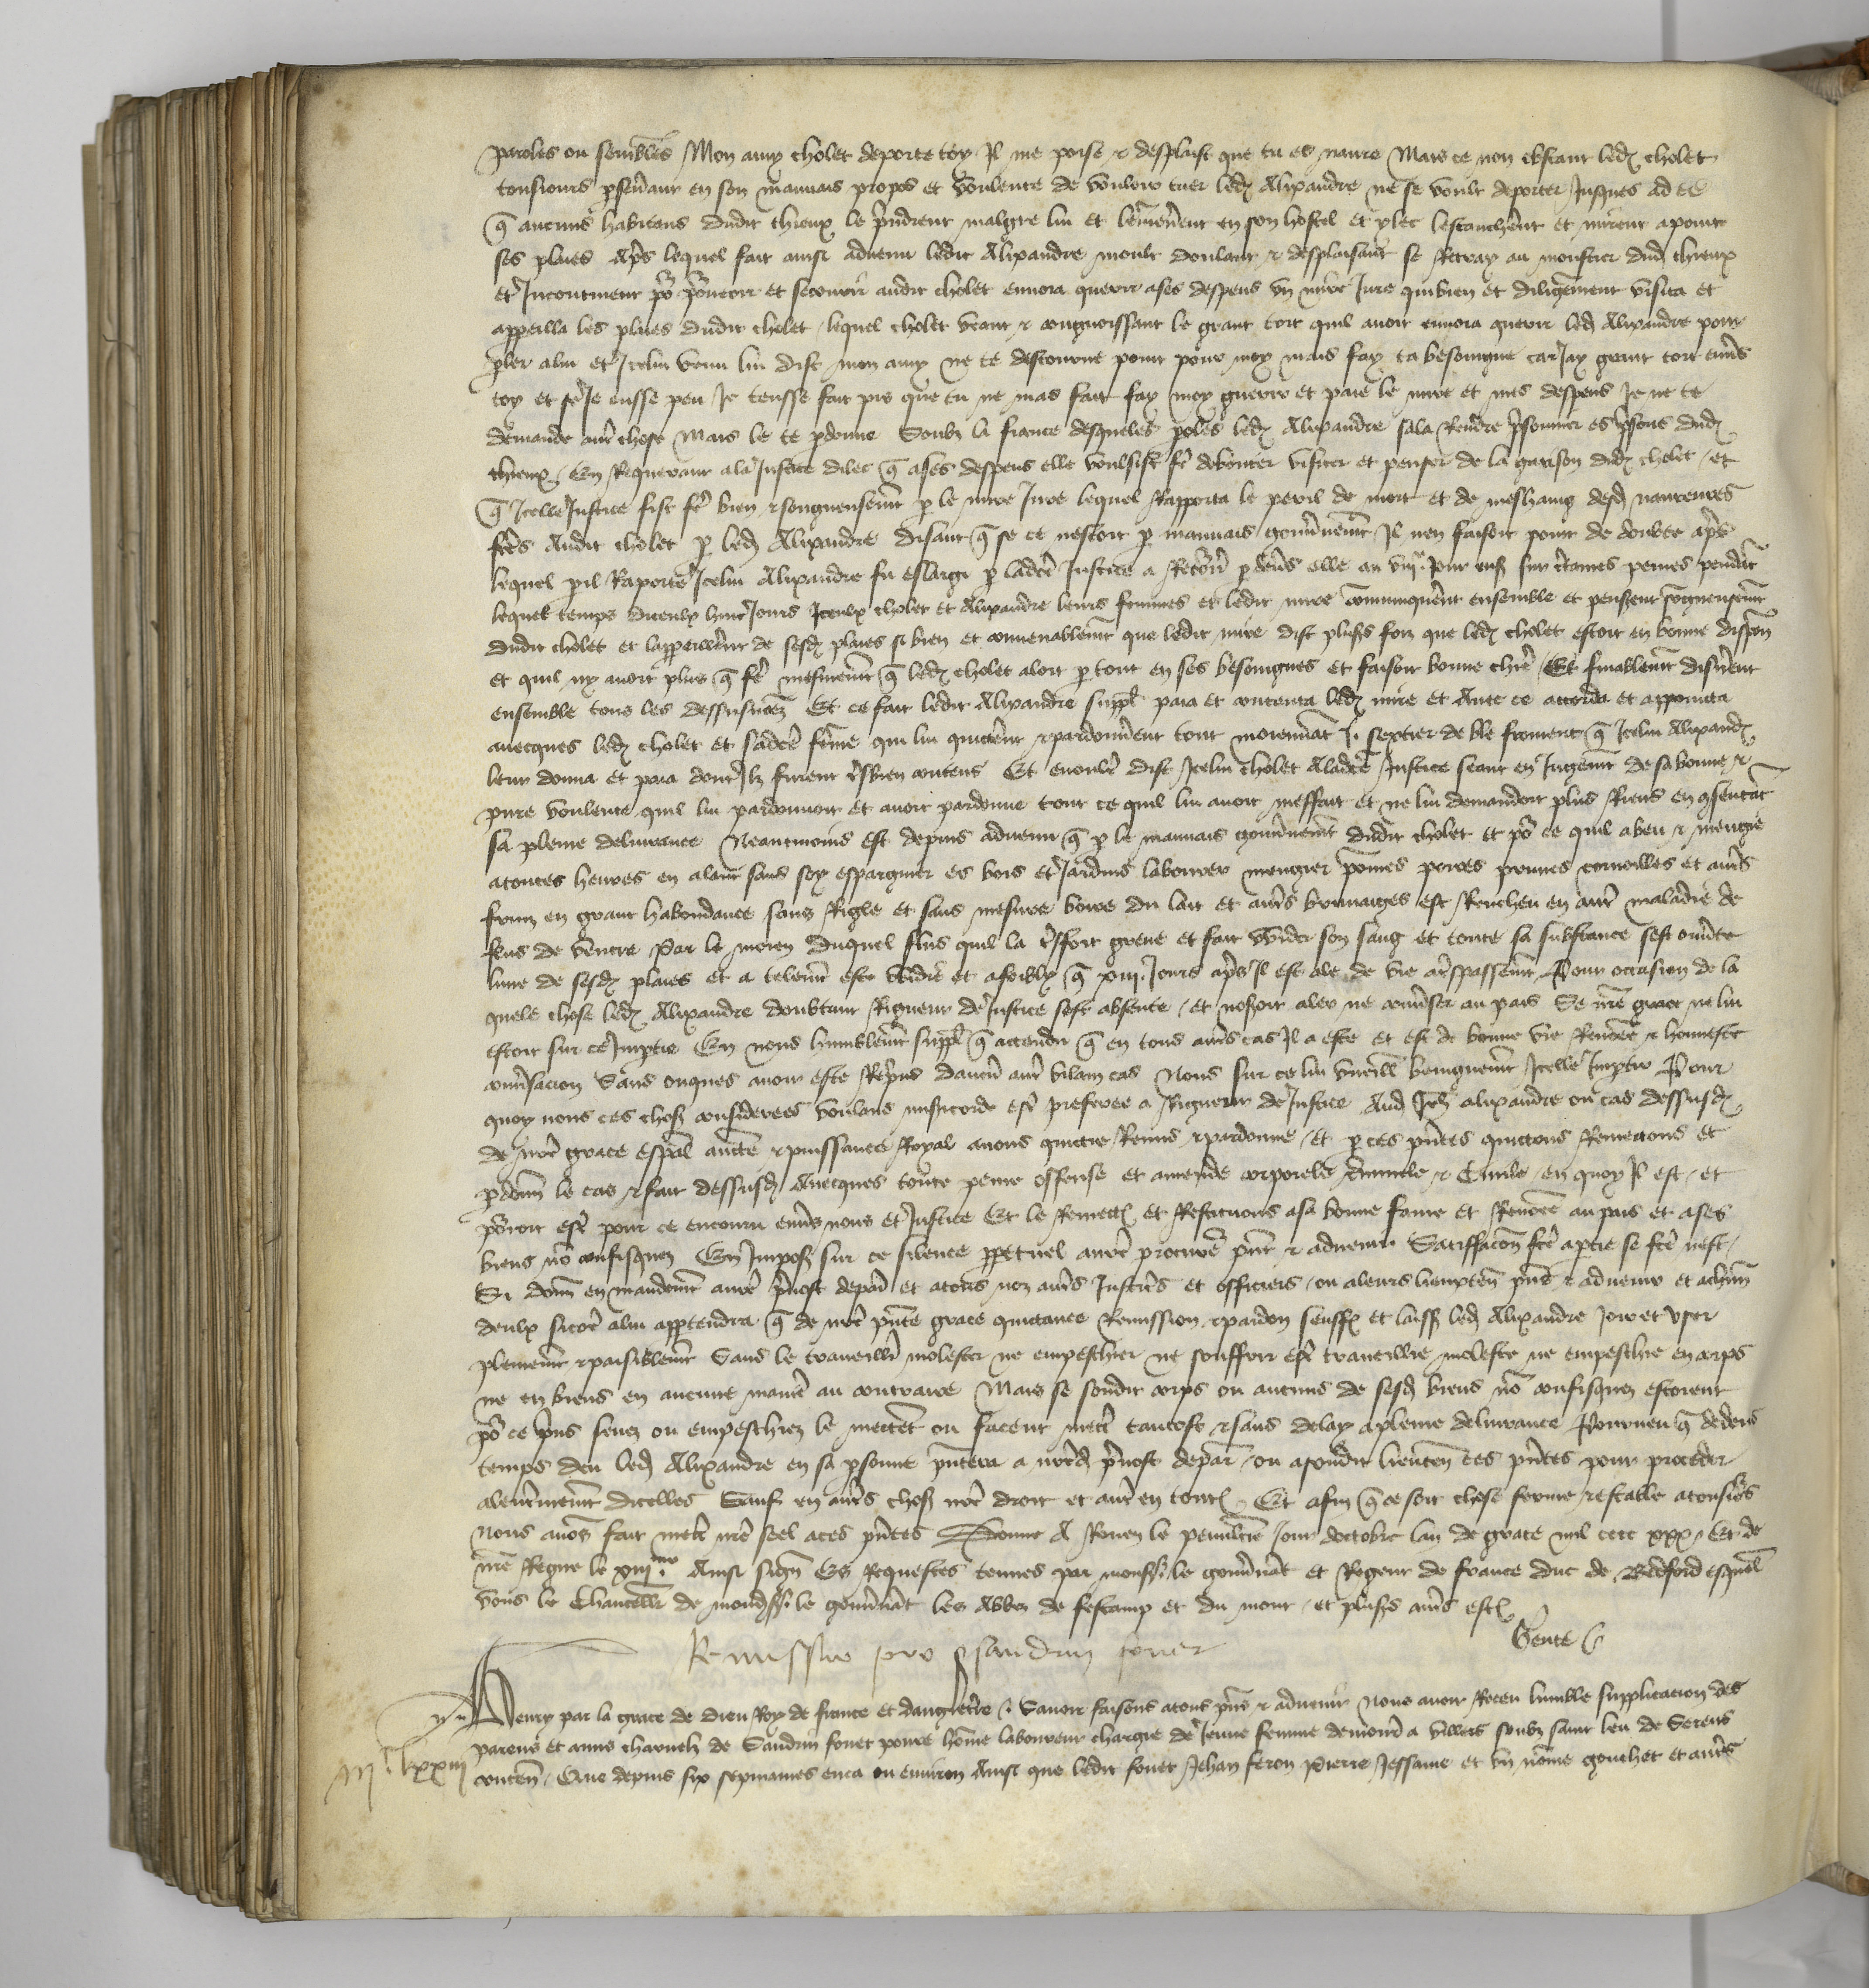 paroles ou sembles Mon amy cholet deporte toy Il me poise & desplaist que tu es navre Mais ce non obstant led cholet
tousiours pseverant en son mauvais propos et voulente de vouloir tuer led Alixandre ne se voult deporter Jusques ad ce
q aucuns habitans dudit thieux le prindrent malgre lui et lemenerent en son hostel et ylec lestancherent et mirent a point
ses plaies Apres lequel fait ainsi advenu ledit Alixandre moult doulant & desplaisant se retray au moustier dud thieux
et Incontinent po pourveoir et secourir audit cholet envoia querir a ses despens un mire Jure qui bien et diligemment visita et
appeilla les plaies dudit cholet lequel cholet veant & congnoissant le grant tort quil avoit envoia querir led Alixandre pour
pler a lui et Icelui venu lui dist mon amy ne te destourne point pour moy mais fay ta besoingne car Jay grant tort envers
toy et se Je eusse peu Je teusse fait pis que tu ne mas fait fay moy guerir et paie le mire et mes despens Je ne te
demande autre chose Mais le te pdonne Soubz la fiance desqueles poles led Alixandre sala Rendre prisonnier es prisons dud
thieux En Requerant a la Justice dilec q a ses despens elle voulsist fe visiter et penser de la garison dud cholet et
q Icelle Justice fist fe bien & songneusement p le mire Jure lequel Rapporta le peril de mort et de meshaing desd navreures
fctes Audit cholet p led Alixandre disant q se ce nestoit p mauvais gouvernement Il nen faisoit point de doubte apres
lequel pil Raporte Icelui Alixandre fu eslargi p ladicte Justice a Retourn p devers elle au viije Jour ens sur certaines peines pendant
lequel temps diceulx huit Jours Iceulx cholet et Alixandre leurs femmes et ledit mire communiquerent ensemble et penserent songneusement
dudit cholet et lappeillerent de sesd plaies si bien et convenablement que ledit mire dist pluss foiz que led cholet estoit en bonne disposicion
et quil ny avoit plus q fe mesmement q led cholet aloit p tout en ses besoingnes et faisoit bonne chiere Et finablement disnerent
ensemble tous les dessusnomez Et ce fait ledit Alixandre suppl paia et contenta led mire et Aute ce accorda et appointa
avecques led cholet et sadicte feme qui lui quicterent & pardonnerent tout moiennant i sextier de ble froment q Icelui Alixand
leur donna et paia dont Ilz furent tresbien contens Et enoultre dist Icelui cholet A ladicte Justice seant en Jugement de sa bonne &
pure voulente quil lui pardonnoit et avoit pardonne tout ce quil lui avoit meffait et ne lui demandoit plus Riens en consentant
sa pleine delivrance Neantmoins est depuis advenu q p le mauvais gouvernement dudit cholet et po ce quil a beu & mengie
a toutes heures en alant sans soy espargnier es bois et Jardins labourer mengier pomes poires prunes cornoilles et autres
fruiz en grant habondance sans Rigle et sans mesure boire du lait et autres bruvaiges est Rencheu en autre maladie de
flus de ventre Par le moien duquel flus quil la tresfort greve et fait vuider son sang et toute sa substance sest ouverte
lune de sesd plaies et a telement este vuidie et afoibly q xiij Jours apres Il est ale de vie a trespassement Pour occasion de la
quele chose led Alixandre doubtant Rigueur de Justice sest absente et noseroit aler ne converser au pais Se nre grace ne lui
estoit sur ce Impartie En nous humblement suppl q attendu q en tous autres cas Il a este et est de bonne vie Renomee & honneste
conversacion Sans onques avoir este Repris daucun autre vilain cas Nous sur ce lui vueill benignement Icelle Impartir Pour
quoy nous ces chos considerees voulans misericorde estre preferee a Rigueur de Justice Aud alixandre ou cas dessusd
de nre grace espal auctte & puissance Royal avons quicte Remis & pardonne Et p ces pntes quictons Remectons et
pdonn le cas & fait dessusd Avecques toute peine offense et amende corporele criminele & Civile en quoy Il est et
pourroit estre pour ce encouru envers nous et Justice Et le Remett et Restituons a sa bonne fame et Renomee au pais et a ses
biens no confisquez En Impos sur ce silence ppetuel a nre procureur pnt & advenir Satisfacion fcte a ptie se fcte nest
Si donn en mandement a nre prevost de paris et a tous noz autres Justiciers et officiers ou a leurs lieuxten pns & advenir et a chun
deulx sicome a lui apptendra q de nre pnte grace quictance Remission & pardon seuff et laiss led Alixandre Joir et user
plainement & paisiblement Sans le travaillier molester ne empeschier ne souffrir estre travaillie moleste ne empeschie en corps
ne en biens en aucune maniere au contraire Mais se sondit corps ou aucuns de sesd biens no confisquez estoient
po ce prins seuez ou empeschiez le mettet ou facent mettre tantost & sans delay a pleine delivrance Pourveu q dedens
temps deu led Alixandre en sa personne pntera a nred prevost de paris ou a sondit lieuten ces pntes pour proceder
a lenterinement dicelles Sauf en autres chos nre droit et lautrui en toutes Et afin q ce soit chose ferme & estable a tousiours
nous avons fait mettre nre seel a ces pntes Donne A Rouen le penultie Jour doctobre lan de grace mil cccc xxx Et de
nre Regne le xiij.me Ainsi signe Es Requestes tenues par monss. le gouvernant et Regent de france duc de Bedford esquel
vous le Chancellier de mondss. le gouvernant les Abbez de fescamp et du mont et pluss autres estiez
Gente
Remissio pro Sandrin fouet
Henry par la grace de dieu Roy de france et dangleterre Savoir faisons a tous pns & advenir Nous avoir Receu lumble supplicacion des
parens et amis charnelz de Sandrin fouet povre home laboureur chargie de Jeune femme demourant a villers soubz saint leu de Serens
conten Que depuis six sepmaines enca ou environ Ainsi que ledit fouet Jehan feron Pierre Jessaume et un nome gouchet et autres
iijc lxxiij